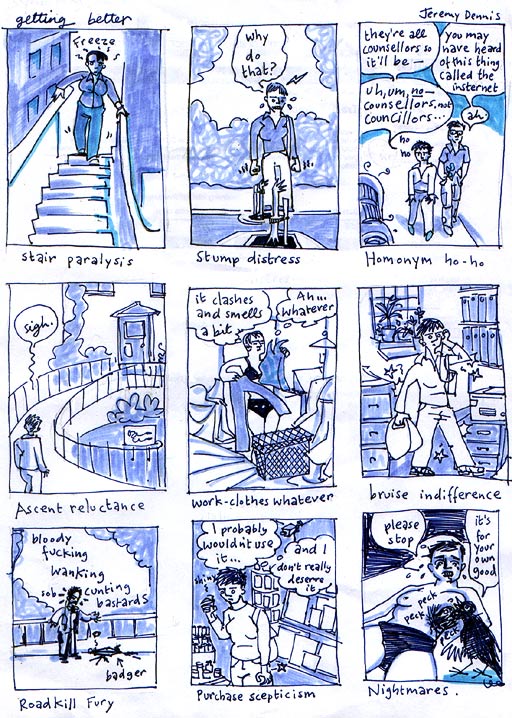 getting better
Jeremy Dennis
Freeze
Stair paralysis
why
do
that?
Stump distress
they're all
counsellors so
it'll be —
you may
have heard
of this thing
called the
internet
Uh, um, no —
counsellors, not
councillors...
ah.
ho
ho
Homonym ho-ho
sigh.
Ascent reluctance
it clashes
and smells
a bit
Ah...
whatever
work-clothes whatever
bruise indifference
bloody
fucking
wanking
sob
cunting
bastards
badger
Roadkill Fury
I probably
wouldn't use
it...
and I
don't really
deserve
it
shiny
Purchase scepticism
please
stop
it's
for
your
own
good
peck
peck
peck
Nightmares.